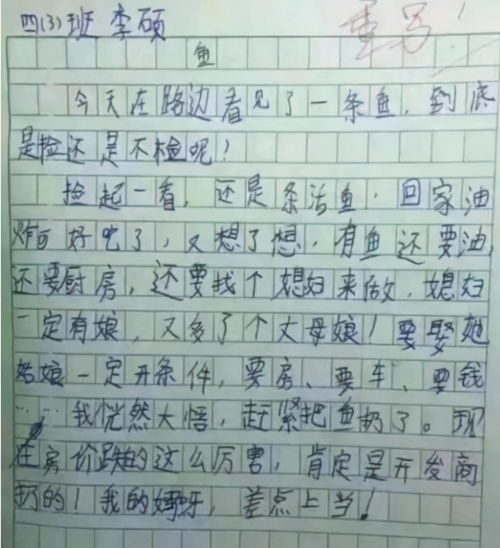 四(3)班 李硕
重写!
鱼
今天在路边看见了一条鱼，到底
是捡还是不检呢!
捡起一看，还是条活鱼，回家油
炸可好吃了，又想了想，有鱼还要油
还要厨房，还要找个媳妇来做，媳妇
一定有娘，又多了个丈母娘!要娶她
姑娘一定开条件，要房、要车、要钱
……我恍然大悟，赶紧把鱼扔了。现
在房价跌的这么厉害，肯定是开发商
扔的!我的妈呀，差点上当!